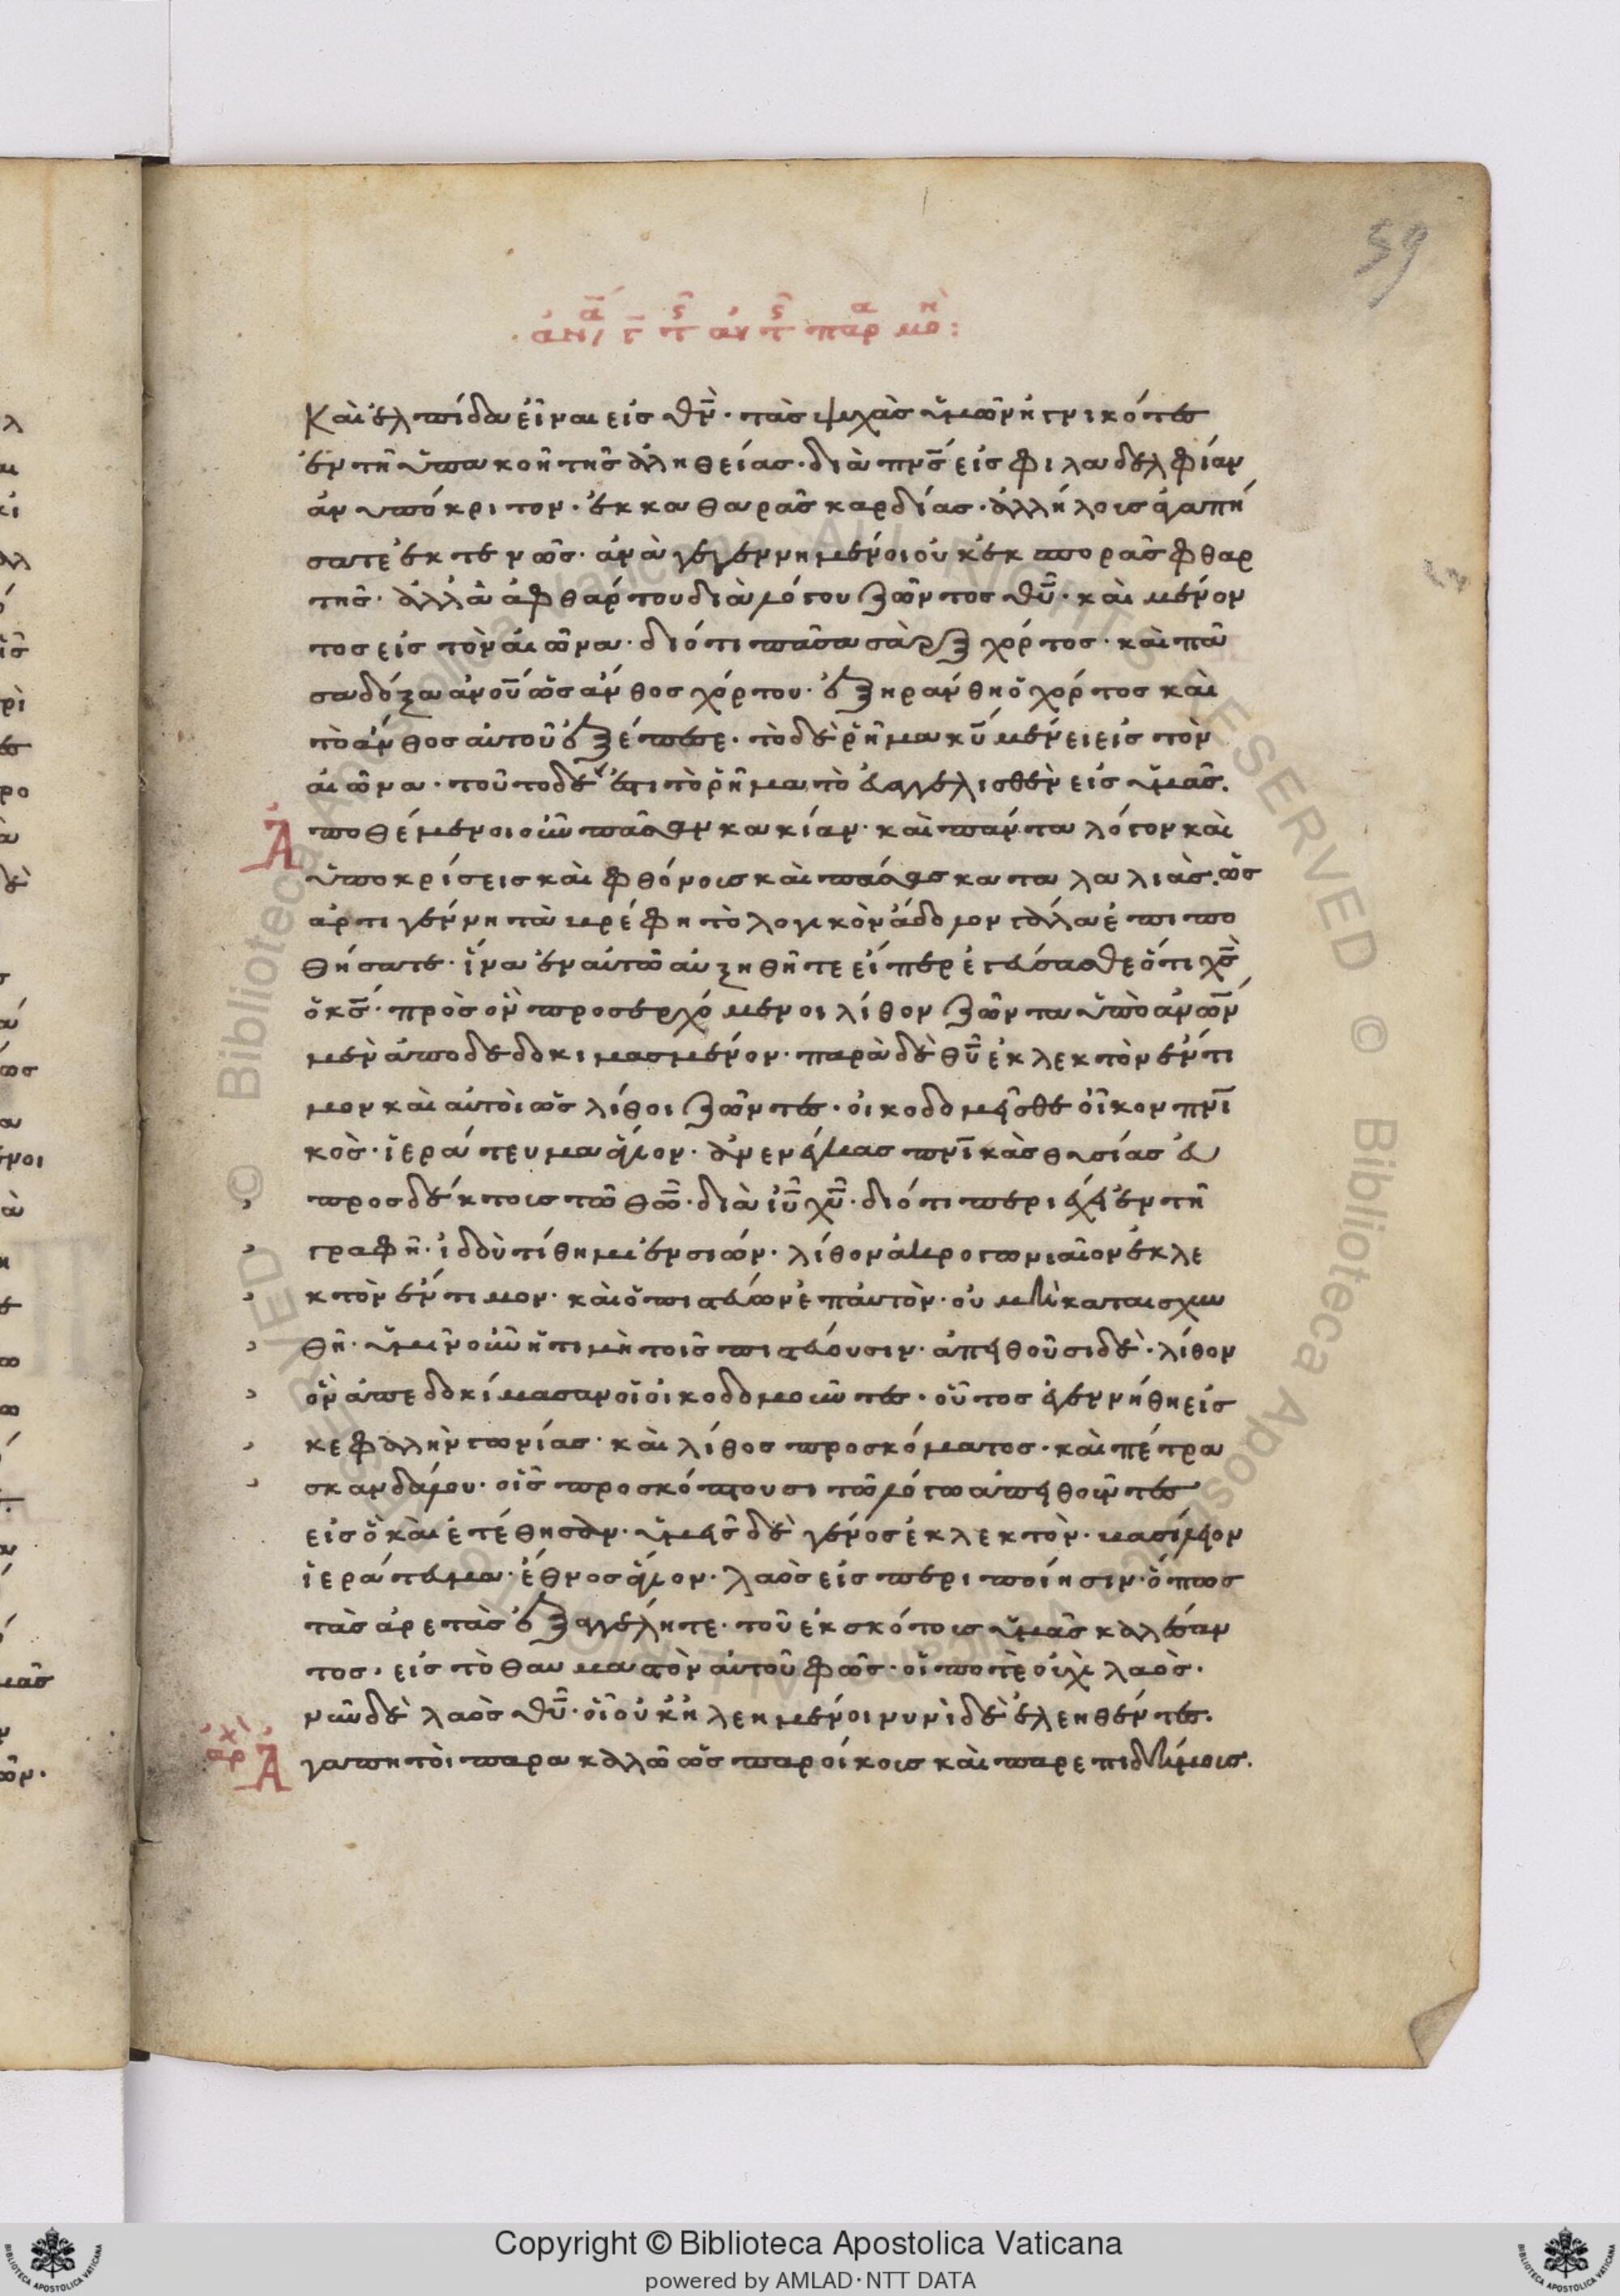 59
Καὶ ἐλπίδα εἶναι εἰς θν̄· τὰς ψυχὰς ὑμῶν ἡγνικότες
ἐν τῇ ὑπακοῇ τῆς ἀληθείας· διὰ πνς̄ εἰς φιλαδελφίαν
ἀνυπόκριτον· ἐκ καθαρᾶς καρδίας· ἀλλήλους ἀγαπή
σατε ἐκτενῶς· ἀναγεγεννημένοι οὐκ ἐκ σπορᾶς φθαρ
τῆς· ἀλλὰ ἀφθάρτου διὰ λόγου ζῶντος θῡ· καὶ μένον
τος εἰς τὸν αἰῶνα· διότι πᾶσα σὰρξ χόρτος· καὶ πᾶ
σα δόξα ἀνοῡ ὡς ἄνθος χόρτου· ἐξηράνθη ὁ χόρτος καὶ
τὸ ἄνθος αὐτοῦ ἐξέπεσε· τὸ δὲ ῥῆμα κῡ μένει εἰς τὸν
αἰῶνα· τοῦτο δέ ἐστι τὸ ῥῆμα τὸ εὐαγγελισθὲν εἰς ὑμᾶς.
Ἀποθέμενοι οὖν πᾶσαν κακίαν· καὶ πάντα δόλον καὶ
ὑποκρίσεις καὶ φθόνους καὶ πάσας καταλαλιάς. ὡς
ἀρτιγέννητα βρέφη τὸ λογικὸν ἄδολον γάλα ἐπιπο
θήσατε· ἵνα ἐν αὐτῶ αὐξηθῆτε εἴπερ ἐγεύσασθε ὅτι χς̄
ὁ κς̄· πρὸς ὃν προσερχόμενοι λίθον ζῶντα ὑπὸ ἀνων̄
μὲν ἀποδεδοκιμασμένον· παρὰ δὲ θῡ ἐκλεκτὸν ἔντι
μον καὶ αὐτοὶ ὡς λίθοι ζῶντες· οἰκοδομεῖσθε οἶκον πνῑ
κὸς· ἱεράτευμα ἅγιον· ἀνενέγκας πνῑκὰς θυσίας εὐ
προσδέκτους τῶ θω̄· διὰ ῑῡ χῡ· διότι περιέχει ἐν τῇ
γραφῇ· ἰδοὺ τίθημι ἐν σιών· λίθον ἀκρογωνιαῖον ἐκλε
κτὸν ἔντιμον· καὶ ὁ πιστεύων ἐπ' αὐτὸν· οὐ μὴ καταισχυν
θῇ· ὑμῖν οὖν ἡ τιμὴ τοῖς πιστεύουσιν· ἀπειθοῦσι δὲ· λίθον
ὃν ἀπεδοκίμασαν οἱ οἰκοδομοῦντες· οὗτος ἐγεννήθη εἰς
κεφαλὴν γωνίας· καὶ λίθος προσκόμματος· καὶ πέτρα
σκανδάλου· οἷς προσκόπτουσι τῶ λόγω ἀπειθοῦντες
εἰς ὃ καὶ ἐτέθησαν· ὑμεῖς δὲ γένος ἐκλεκτὸν· βασίλειον
ἱεράτευμα· ἔθνος ἅγιον· λαὸς εἰς περιποίησιν· ὅπως
τὰς ἀρετὰς ἐξαγγείλητε· τοῦ ἐκ σκότους ὑμᾶς καλέσαν
τος· εἰς τὸ θαυμαστὸν αὐτοῦ φῶς· οἵ ποτὲ οὐχὶ λαὸς·
νῦν δὲ λαὸς θῡ· οἳ οὐκ ἠλεημένοι νυνὶ δὲ ἐλεηθέντες.
ἀρχ Ἀγαπητοὶ παρακαλῶ ὡς παροίκους καὶ παρεπιδήμους.